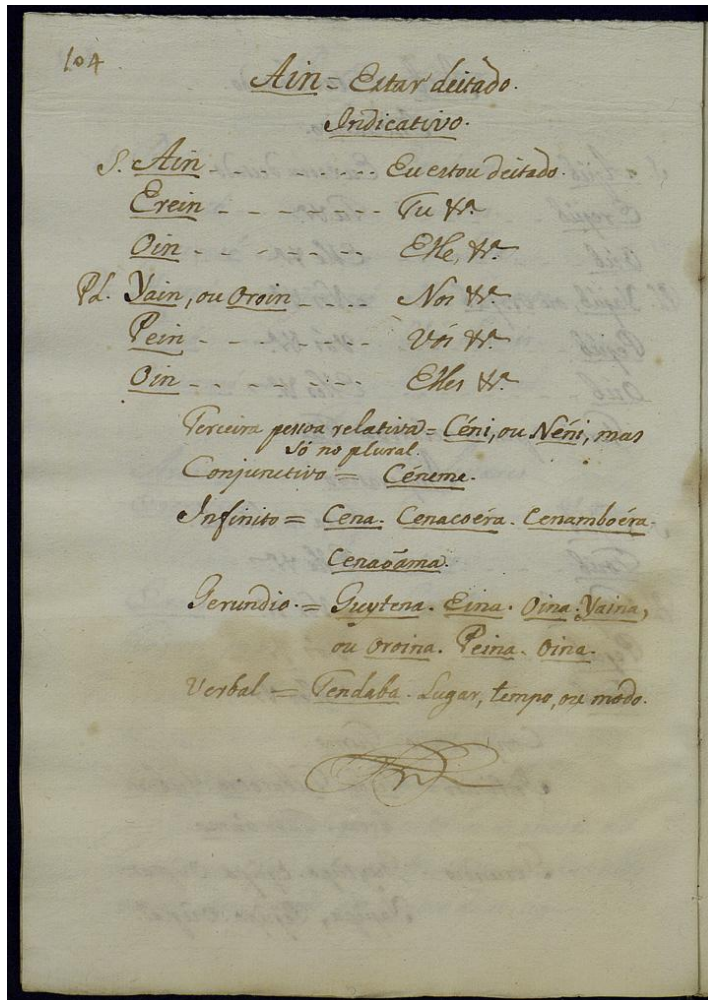 104
Ain = Estar deitado.
Indicativo.
S. Ain - - - - - - - - Eu estou deitado.
Erein - - - - - - - Tu &a.
Oin - - - - - - - Elle, &a.
Pl. Yain, ou Oroin - - - - Nos &a.
Pein - - - - - - - Vós &a.
Oin - - - - - - - Elles &a.
Terceira pessoa relativa = Céni, ou Néni, mas
só no plural.
Conjunctivo = Céneme.
Infinito = Cena. Cenacoéra. Cenamboéra.
Cenaoáma.
Gerundio. = Guytena. Eina. Oina. Yaina,
ou Oroina. Peina. Oina.
Verbal = Tendaba. Lugar, tempo, ou modo.